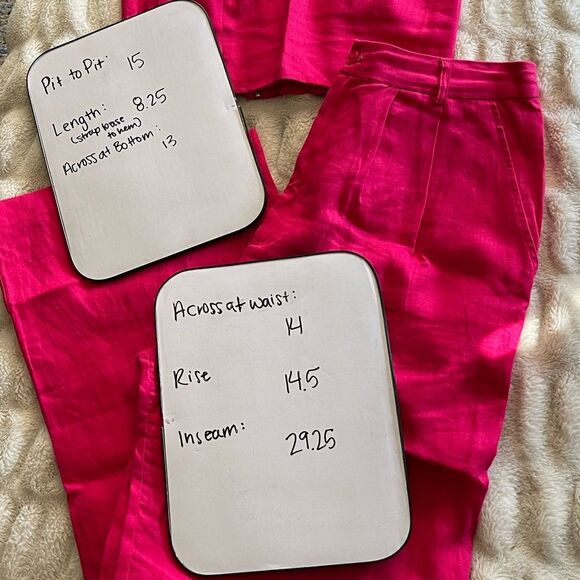 Pit to Pit: 15
Length: 8.25
(strap base
to hem)
Across at Bottom: 13
Across at waist:
14
Rise 14.5
Inseam: 29.25